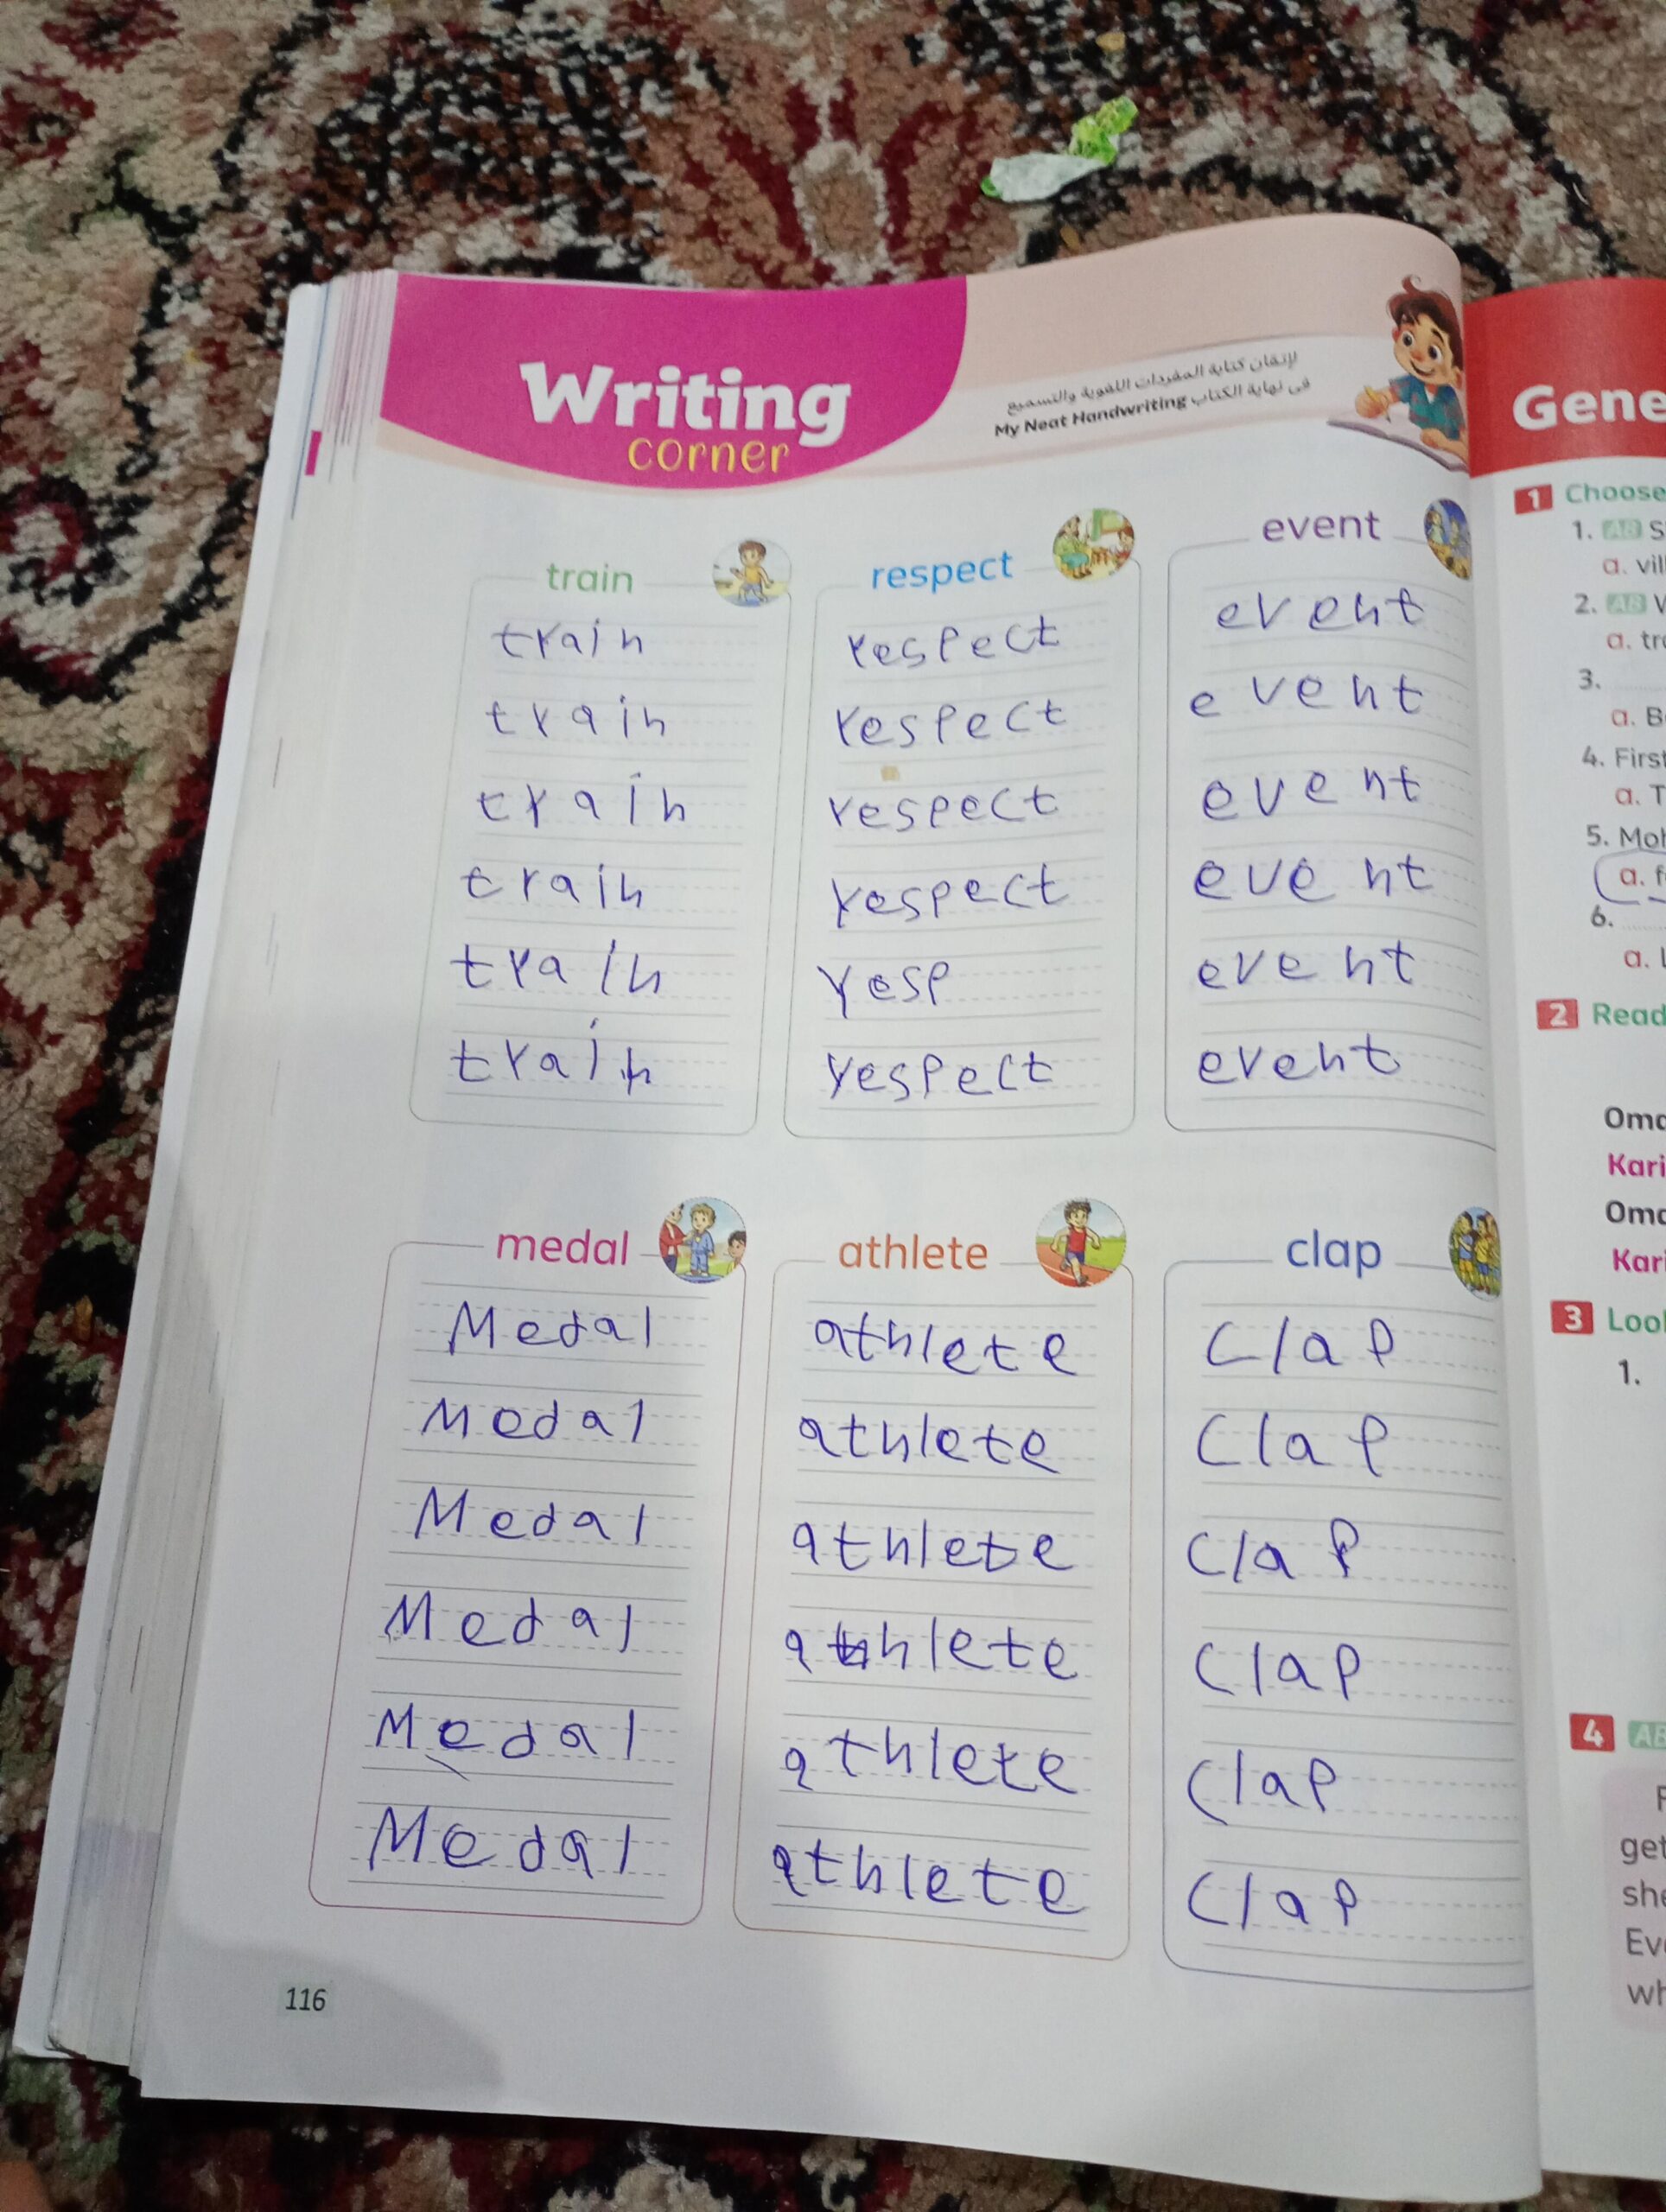 Writing
corner
لإتقان كتابة المفردات اللغوية والتسميع
فى نهاية الكتاب My Neat Handwriting
train
train
train
train
train
train
train
respect
respect
respect
respect
respect
resp
respect
event
event
event
event
event
event
event
medal
Medal
Medal
Medal
Medal
Medal
Medal
athlete
athlete
athlete
athlete
athlete
athlete
athlete
clap
Clap
Clap
Clap
Clap
Clap
Clap
116
1 Choose
1. AB
a.
2. AB
a.
3.
a.
4. First
a.
5.
a.
6.
a.
2 Read
3
1.
4
get